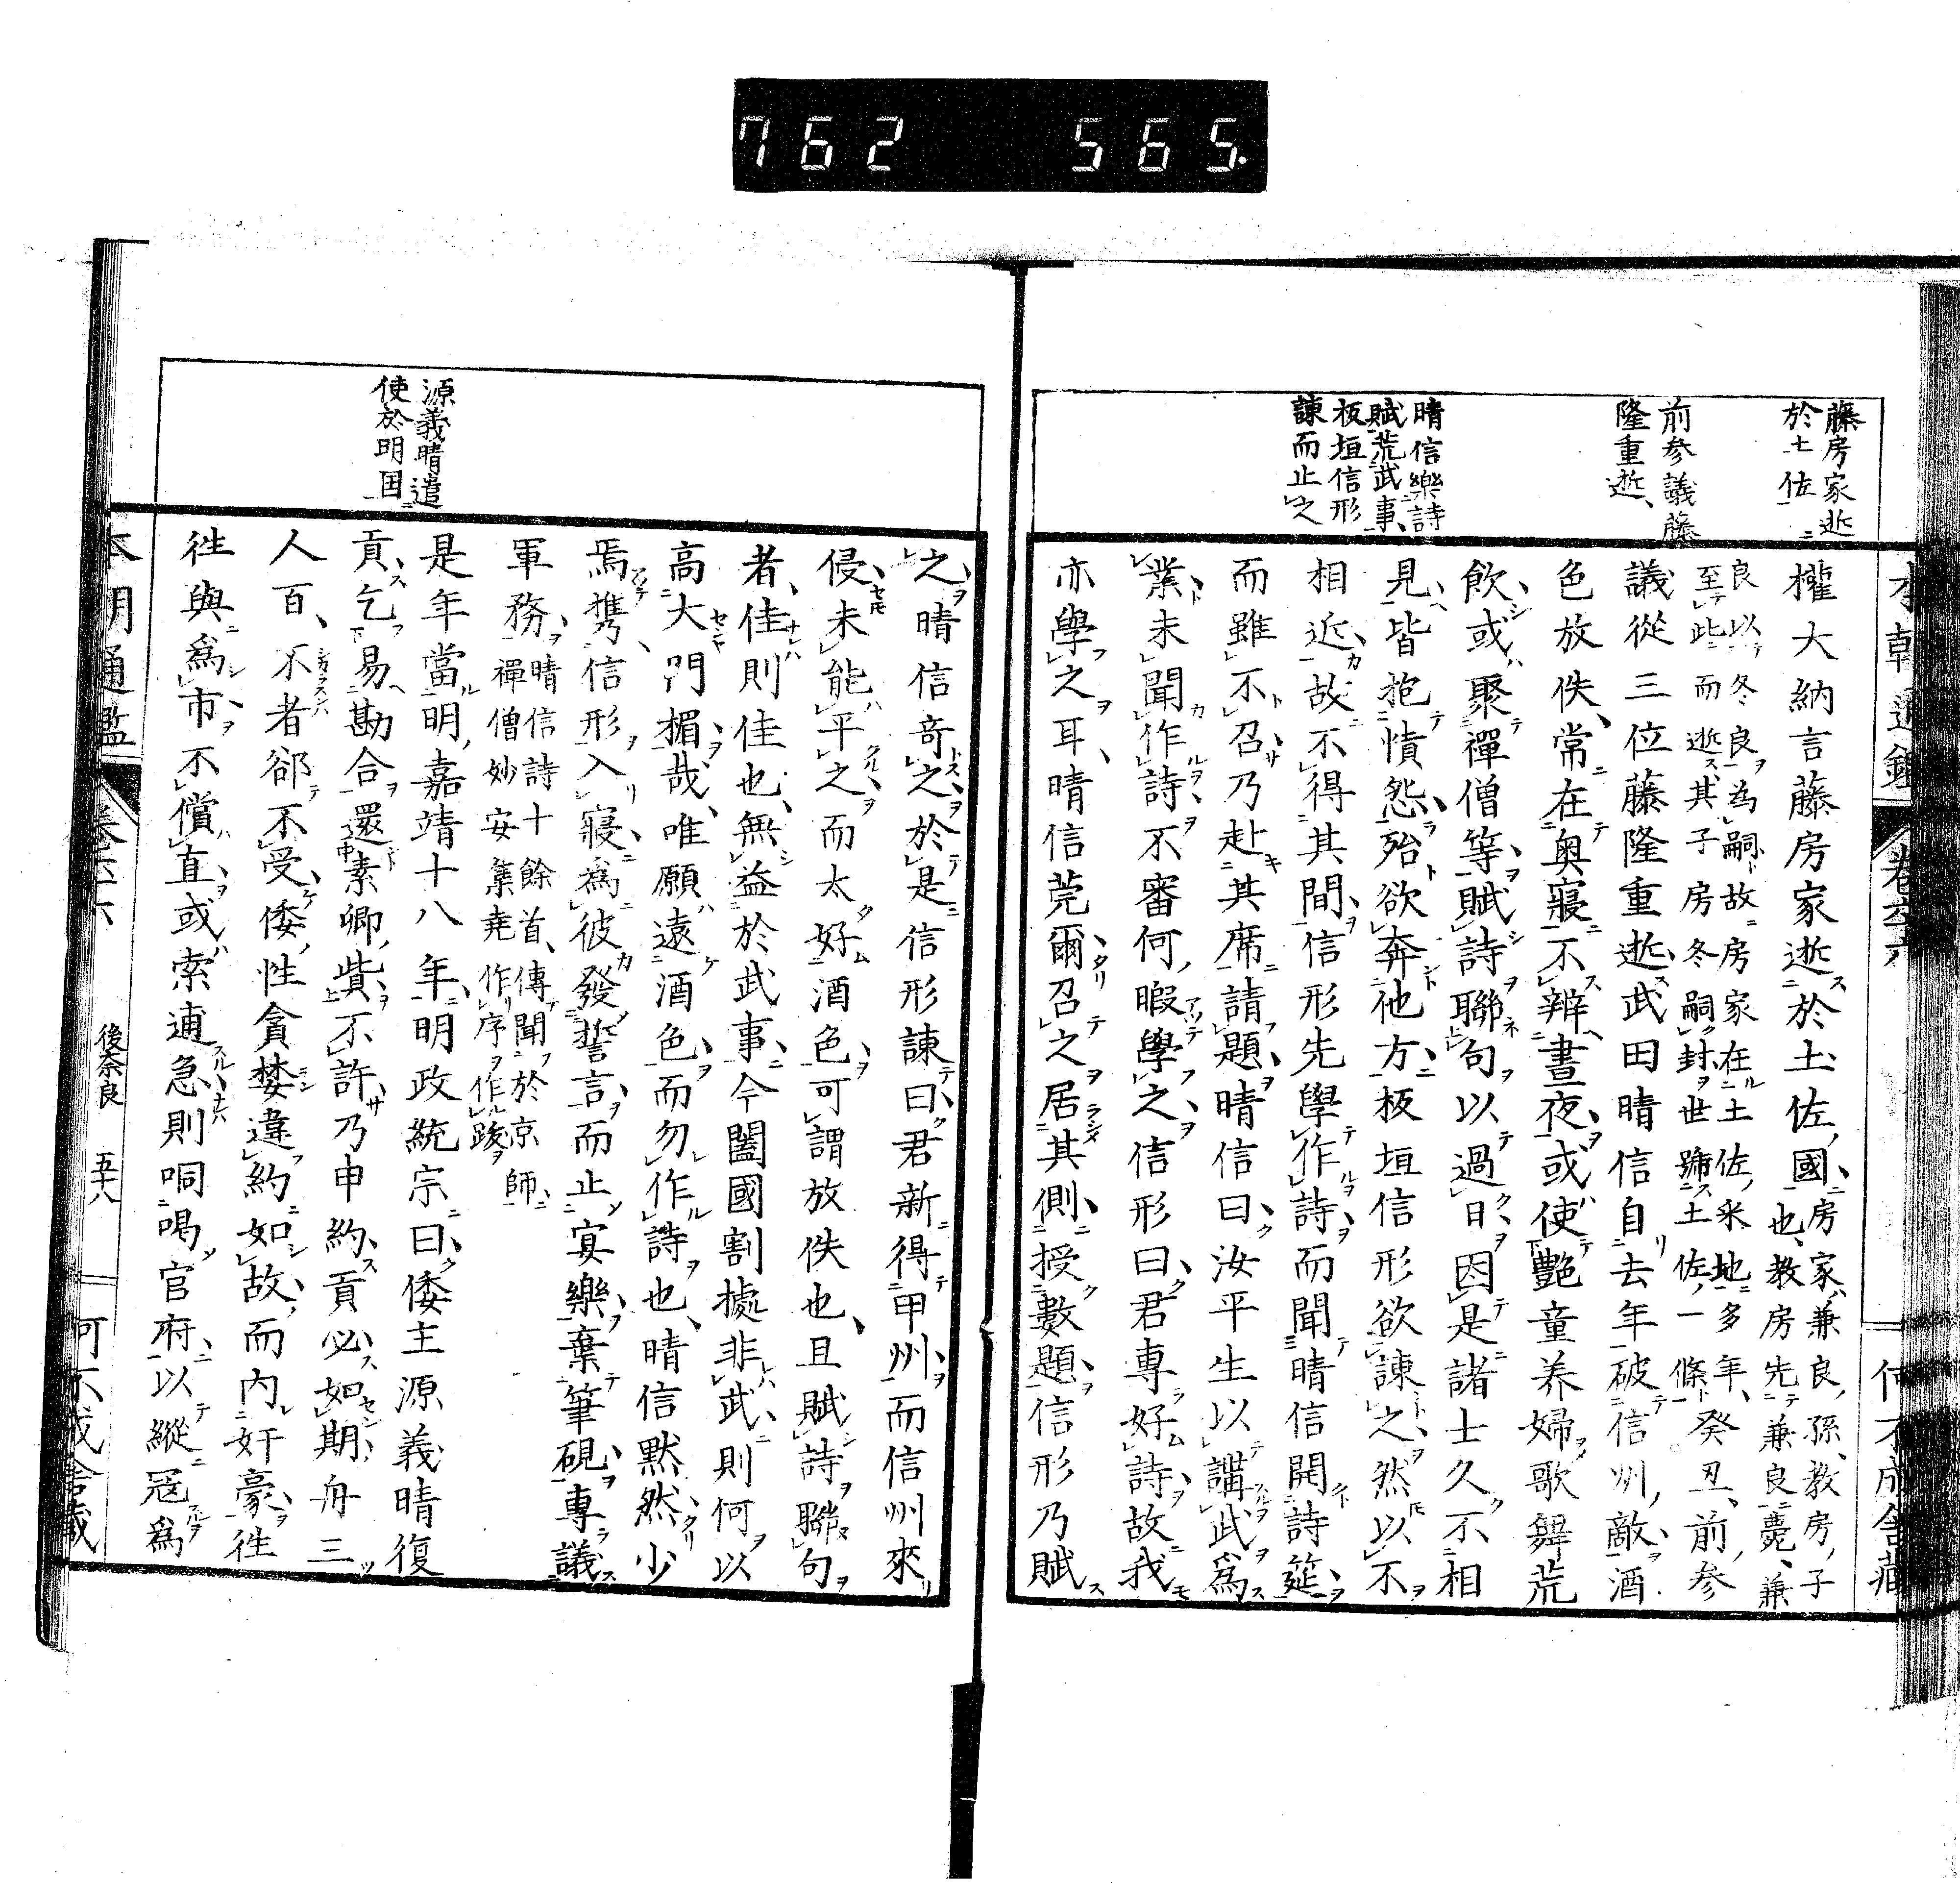 762 565.
藤房家逝
於土佐
前参議藤
隆重逝
晴信樂詩
賦荒武事
板垣信形
諌而止之
權大納言藤房家逝於土佐國
房家兼良孫教房子
也教房先兼良薨兼
良以冬良為嗣故房家在土佐采地多年
至此而逝其子房冬嗣封世號土佐一條
癸丑前参
議從三位藤隆重逝武田晴信自去年破信州敵酒
色放佚常在奥寢不辨晝夜或使艶童养婦歌舞荒
飲或聚禪僧等賦詩聯句以過日因是諸士久不相
見皆抱憤怨殆欲奔他方板垣信形欲諌之然以不
相近故不得其間信形先學作詩而聞晴信開詩筵
而雖不召乃赴其席請題晴信曰汝平生以講武爲
業未聞作詩不審何暇學之信形曰君専好詩故我
亦學之耳晴信莞爾召之居其側授數題信形乃賦
之晴信竒之於是信形諌曰君新得甲州而信州來
侵未能平之而太好酒色可謂放佚也且賦詩聯句
者佳則佳也無益於武事今闔國割據非武則何以
高大門楣哉唯願遠酒色而勿作詩也晴信默然少
焉携信形入寢爲彼發誓言而止宴樂棄筆硯專議
軍務
晴信詩十餘首傳聞於京師
禪僧妙安集堯作序作跋
源義晴遣
使於明国
是年當明嘉靖十八年明政統宗曰倭主源義晴復
貢乞易勘合還素卿貲不許乃申約貢必如期舟三
人百不者郤不受倭性貪婪違約如故而内奸豪徃
徃與爲市不償直或索逋急則哃喝官府以縱冦爲
本朝通鑑 卷六六 後奈良 五十八